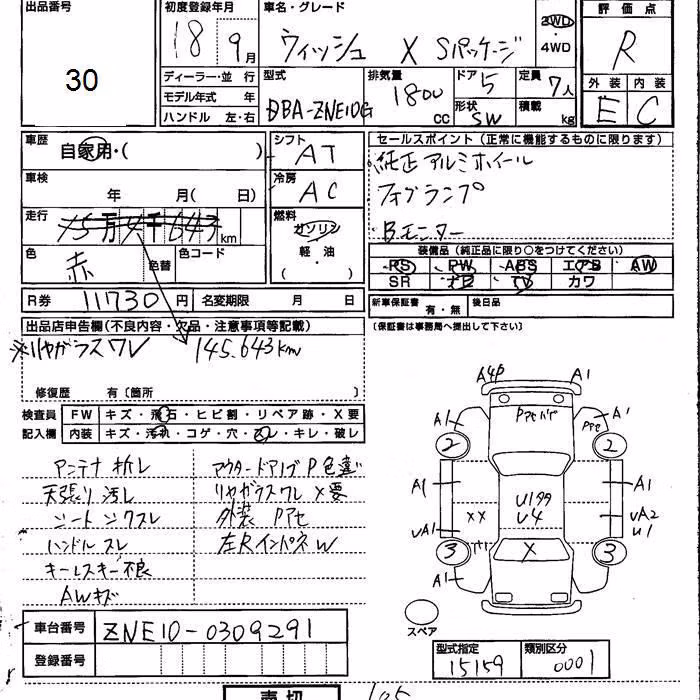 出品番号
30
初度登録年月
18 9月
車名・グレード
ウィッシュ X Sパッケージ
2WD
・4WD
評価点
R
外装 内装
E C
ディーラー・並 行
モデル年式 年
ハンドル 左・右
型式
DBA-ZNE10G
排気量
1800 CC
ドア 5
形状 SW
定員 7人
積載 kg
車歴
自家用・( )
車検
年 月( 日)
走行
15万4千643km
色
赤
色替
色コード
シフト
AT
冷房
AC
燃料
ガソリン
軽・油
( )
セールスポイント (正常に機能するものに限ります)
純正アルミホイール
フォグランプ
Bモニター
装備品 (純正品に限り○をつけてください)
PS PW ABS エアB AW
SR ナビ TV カワ
R券 11730円 名変期限 月 日
新車保証書 有・無 後日品
(保証書は事務局へ提出して下さい)
出品店申告欄(不良内容・欠品・注意事項等記載)
※リヤガラスワレ 145.643km
修復歴 有〔箇所 〕
検査員 FW キズ・飛石・ヒビ割・リペア跡・X要
記入欄 内装 キズ・汚れ・コゲ・穴・スレ・キレ・破レ
アンテナ折レ
天張り汚レ
シートシワスレ
ハンドルスレ
キーレスキー不良
AWキズ
アウタードアノブP色違
リヤガラスワレX要
外装Pアセ
左RインパネW
A4P A1
Pアセハゲ
A1 A1
Pアセ
2 2
A1 A1
U1タタ
U4
XX
UA1 UA2
U1
3 X 3
A1
スペア
車台番号 ZNE10-0309291
登録番号
型式指定 15159
類別区分 0001
売切
105